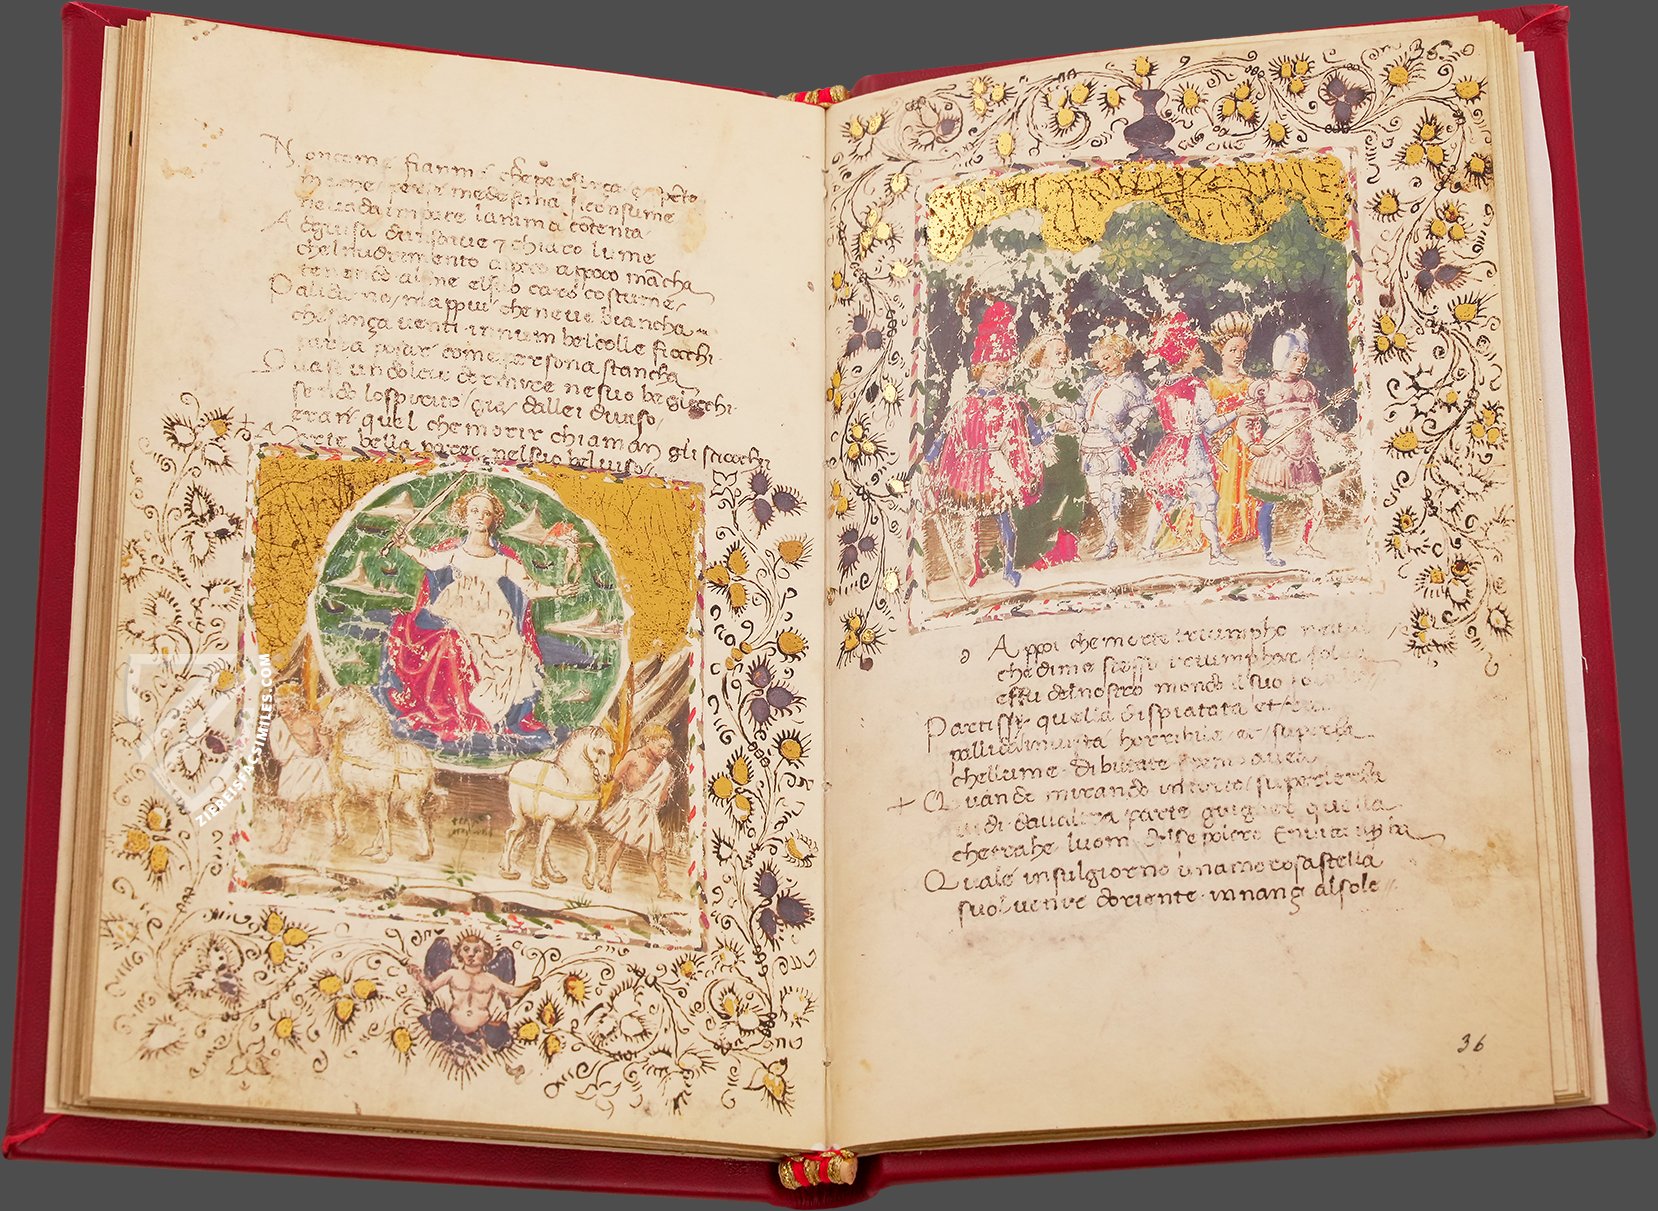 Non come fiamma che per força e spēto
che per se medesma si consume
in pace l anima cōtenta
A guisa dun soave 7 chiaro lume
chel nudrimento a poco a poco mācha
tenendo al fine el suo caro costume
Palida no / ma ppiu che neve biancha
che sença venti in num bel colle fiocchi
parea posar come persona stancha
Quasi un dolce dormire ne suo be gliocchi
sendo lo spirito / gia / dallei diviso /
eran quel che morir chiaman gli sciocchi
Morte bella parea nel suo bel viso /
Appoi che morte triumpho
che di me stesso triumphar solea
effu del nostro mondo il suo
Partissi quella dispiatata et
pallida in vista horribile et superba
chellume di beltate spento avea
Quando mirando intorno / su per lerba
vidi dallaltra parte giugner quella
che trahe luom del sepolcro
Quale in sul giorno una morosa stella
suol venire doriente innanç al sole
36
ZIEREIS FACSIMILES.COM